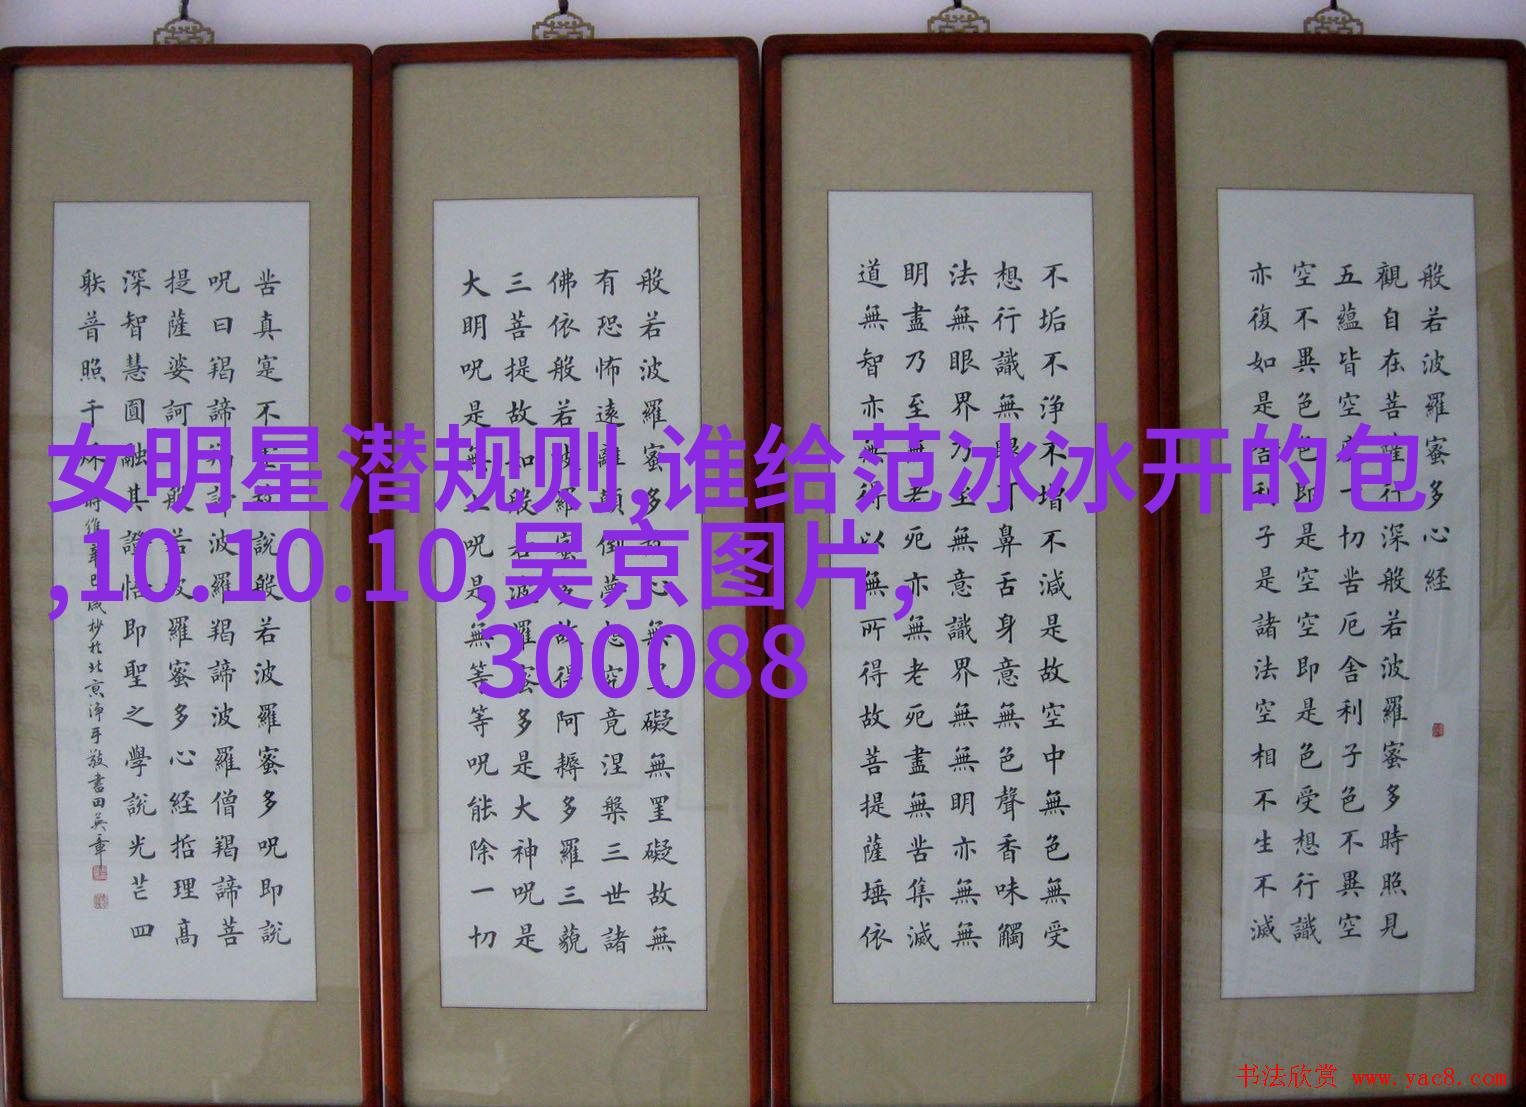 女明星潜规则,谁给范冰冰开的包
,10.10.10,吴京图片,
300088
般若波羅蜜多心経
觀自在菩薩行深般若波羅蜜多時照見
五蘊皆空度一切苦厄舍利子色不異空
空不異色色即是空空即是色受想行識
亦復如是舍利子是諸法空相不生不滅
不垢不浄不增不減是故空中無色無受
想行識無眼耳鼻舌身意無色聲香味觸
法無眼界乃至無意識界無無明亦無無
明盡乃至無老死亦無老死盡無苦集滅
道無智亦無得以無所得故菩提薩埵依
般若波羅蜜多故心無罣礙無罣礙故無
有恐怖遠離顛倒夢想究竟涅槃三世諸
佛依般若波羅蜜多故得阿耨多羅三藐
三菩提故知般若波羅蜜多是大神呪是
大明呪是無上呪是無等等呪能除一切
苦真寔不虛故說般若波羅蜜多呪即說
呪曰羯諦羯諦波羅羯諦波羅僧羯諦菩
提薩婆訶般若波羅蜜多心経哲理高
深智慧圓融其證悟即聖之學說光芒四
䠶普照千秋時維辛巳歲杪於北京淨手敬書田英章
书法欣赏 www.yac8.com